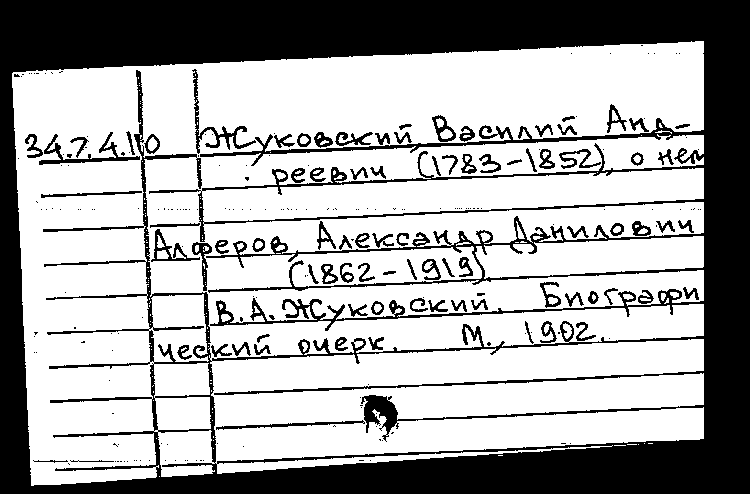 34.7.4.110 Жуковский, Василий Анд-
реевич (1783-1852), о нем
Алферов, Александр Данилович
(1862-1919)
В.А. Жуковский. Биографи
ческий очерк. М., 1902.